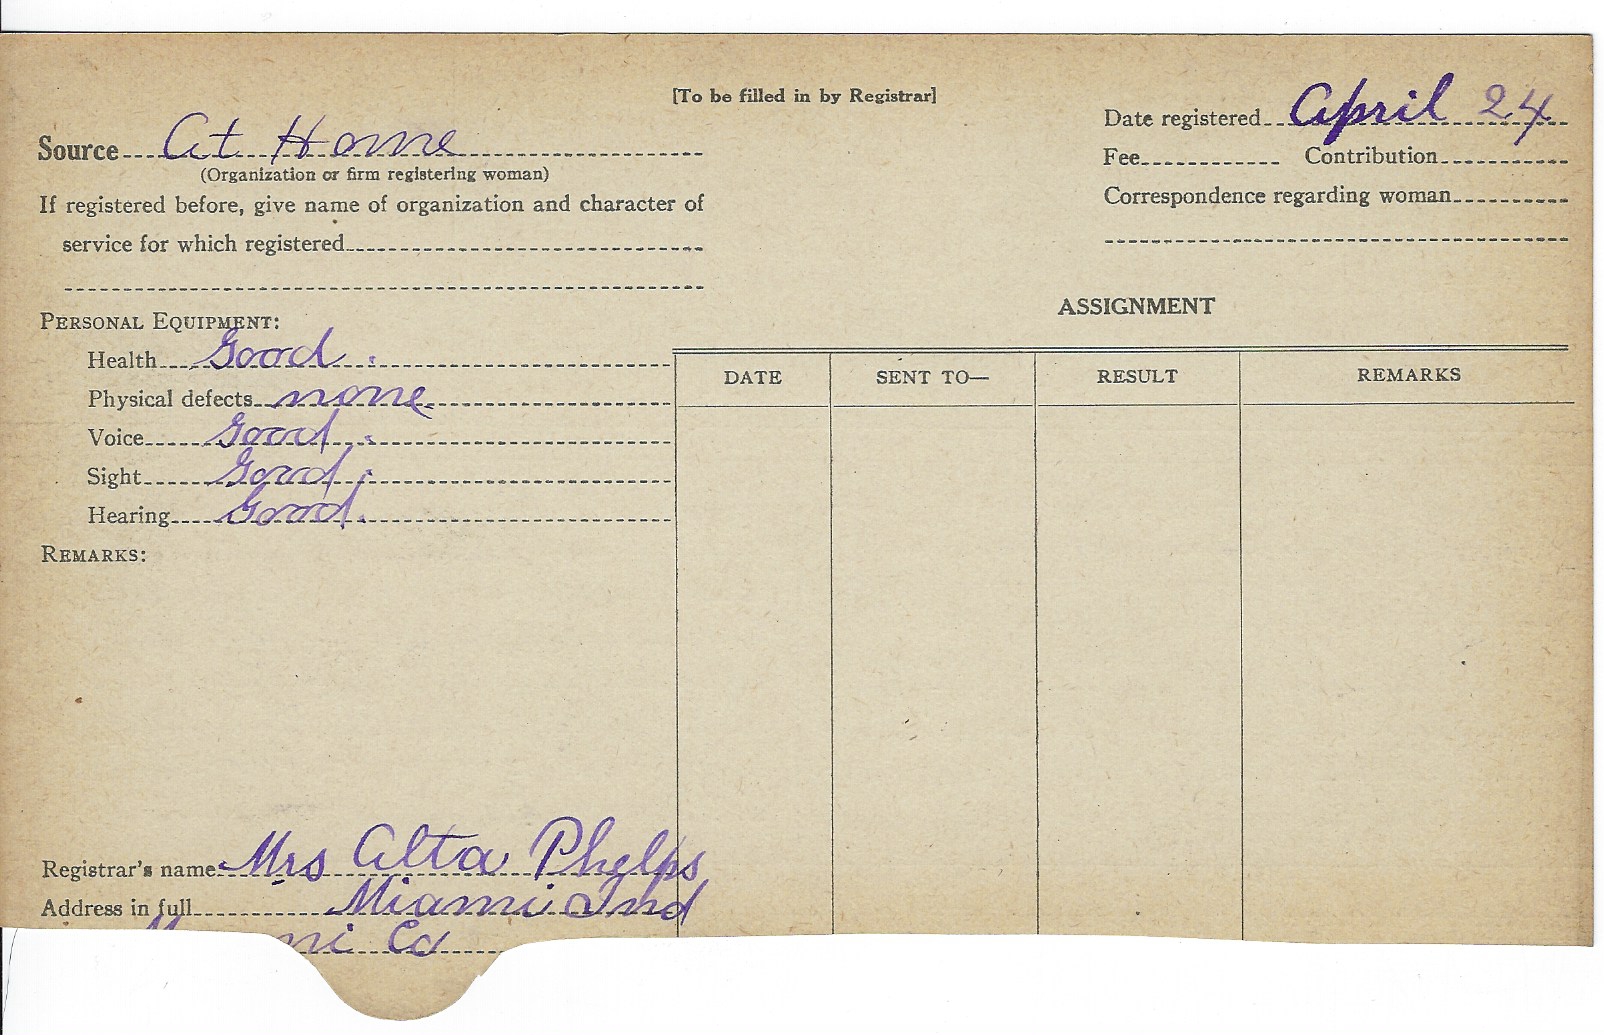 [To be filled in by Registrar]
Source At Home
(Organization or firm registering woman)
If registered before, give name of organization and character of
service for which registered
PERSONAL EQUIPMENT:
Health Good.
Physical defects none.
Voice Good.
Sight Good.
Hearing Good.
REMARKS:
Registrar's name Mrs Alta Phelps
Address in full Miami Ind
Co
Date registered April 24
Fee Contribution
Correspondence regarding woman
ASSIGNMENT
DATE SENT TO— RESULT REMARKS